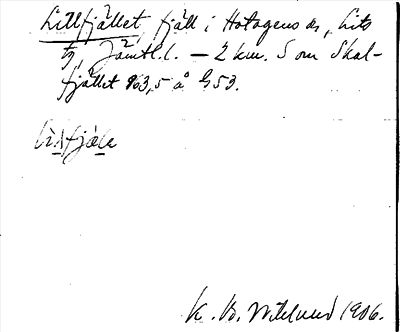 Lillfjället, fjäll i Hotagens sn, Lits
tg, Jämtl. l. — 2 km. S om Skal-
fjället 963,5 å G 53.
K. B. Wiklund 1906.